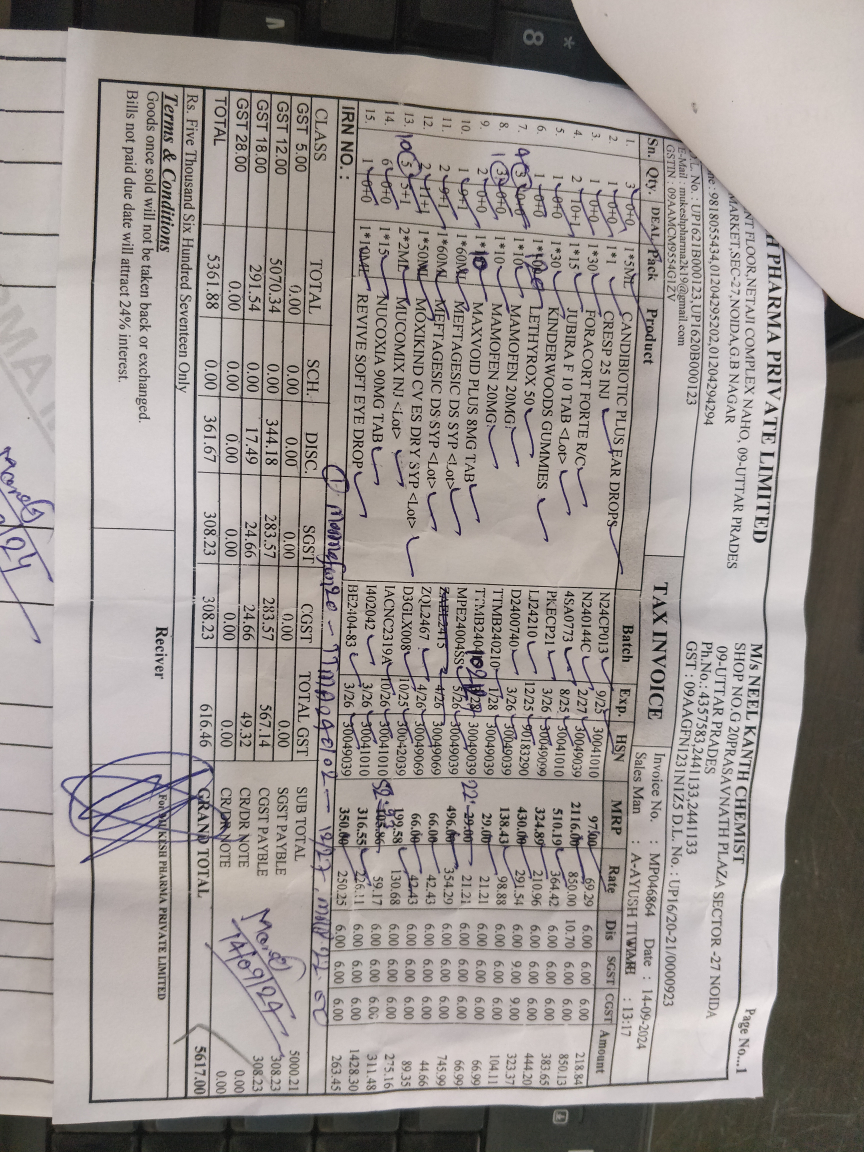 H PHARMA PRIVATE LIMITED
NT FLOOR,NETAJI COMPLEX NAHO, 09-UTTAR PRADES
MARKET,SEC-27,NOIDA,G.B NAGAR
: 9818055434,01204295202,01204294294
L. No. : UP1621B000123,UP1620B000123
E-Mail : mukeshpharma2k19@gmail.com
GSTIN : 09AAMCM9554G1ZV
TAX INVOICE
Page No...1
M/s NEEL KANTH CHEMIST
SHOP NO,G 20PRASAVNATH PLAZA SECTOR -27 NOIDA
09-UTTAR PRADES
Ph.No.:4357583,2441133,2441133
GST : 09AAGFN1231N1Z5 D.L. No. : UP16/20-21/0000923
Invoice No. : MP046864 Date : 14-09-2024
Sales Man : A-AYUSH TIWARI : 13:17
Sn. Qty. DEAL Pack Product Batch Exp. HSN MRP Rate Dis SGST CGST Amount
1. 3 0+0 1*5ML CANDIBIOTIC PLUS EAR DROPS N24CP013 9/25 30041010 97.00 69.29 6.00 6.00 6.00 218.84
2. 1 0+0 1*1 CRESP 25 INJ N240144C 2/27 30049039 2116.00 850.00 10.70 6.00 6.00 850.13
3. 1 0+0 1*30 FORACORT FORTE R/C 4SA0773 8/25 30041010 510.19 364.42 6.00 6.00 6.00 383.65
4. 2 10+1 1*15 JUBIRA F 10 TAB <Lot> PKECP21 3/26 30049099 324.89 210.96 6.00 6.00 6.00 444.20
5. 1 0+0 1*30 KINDERWOODS GUMMIES LJ24210 12/25 90182290 430.00 291.54 6.00 9.00 9.00 323.37
6. 1 0+0 LETHYROX 50 D2400740 3/26 30049039 138.43 98.88 6.00 6.00 6.00 104.11
7. 3 0+0 1*10 MAMOFEN 20MG TTMB240210 1/28 30049039 29.00 21.21 6.00 6.00 6.00 66.99
8. 3 0+0 1*10 MAMOFEN 20MG 30049039 29.00 21.21 6.00 6.00 6.00 66.99
9. 2 0+0 1*10 MAXVOID PLUS 8MG TAB MPE24004SS 5/26 30049039 496.00 354.29 6.00 6.00 6.00 745.99
10. 1 9+1 1*60ML MEFTAGESIC DS SYP <Lot> 4/26 30049069 66.00 42.43 6.00 6.00 6.00 44.66
11. 2 9+1 1*60ML MEFTAGESIC DS SYP <Lot> ZQL2467 4/26 30049069 66.00 42.43 6.00 6.00 6.00 89.35
12. 2 11+1 1*50ML MOXIKIND CV ES DRY SYP <Lot> D3GLX008 10/25 30042039 199.58 130.68 6.00 6.00 6.00 275.16
13. 5 5+1 2*2ML MUCOMIX INJ <Lot> IACNC2319A 10/26 30041010 105.86 59.17 6.00 6.00 6.00 311.48
14. 6 0+0 1*15 NUCOXIA 90MG TAB 1402042 3/26 30041010 316.55 226.11 6.00 6.00 6.00 1428.30
15. 1 0+0 1*10ML REVIVE SOFT EYE DROP BE2404-83 3/26 30049039 350.00 250.25 6.00 6.00 6.00 263.45
IRN NO. :
CLASS TOTAL SCH. DISC. SGST CGST TOTAL GST
GST 5.00 0.00 0.00 0.00 0.00 0.00 0.00
GST 12.00 5070.34 0.00 344.18 283.57 283.57 567.14
GST 18.00 291.54 0.00 17.49 24.66 24.66 49.32
GST 28.00 0.00 0.00 0.00 0.00 0.00 0.00
TOTAL 5361.88 0.00 361.67 308.23 308.23 616.46
SUB TOTAL 5000.21
SGST PAYBLE 308.23
CGST PAYBLE 308.23
CR/DR NOTE 0.00
CR/DR NOTE 0.00
14/09/24
Rs. Five Thousand Six Hundred Seventeen Only
GRAND TOTAL 5617.00
Terms & Conditions
Goods once sold will not be taken back or exchanged.
Bills not paid due date will attract 24% interest.
Reciver
For MUKESH PHARMA PRIVATE LIMITED
8
*